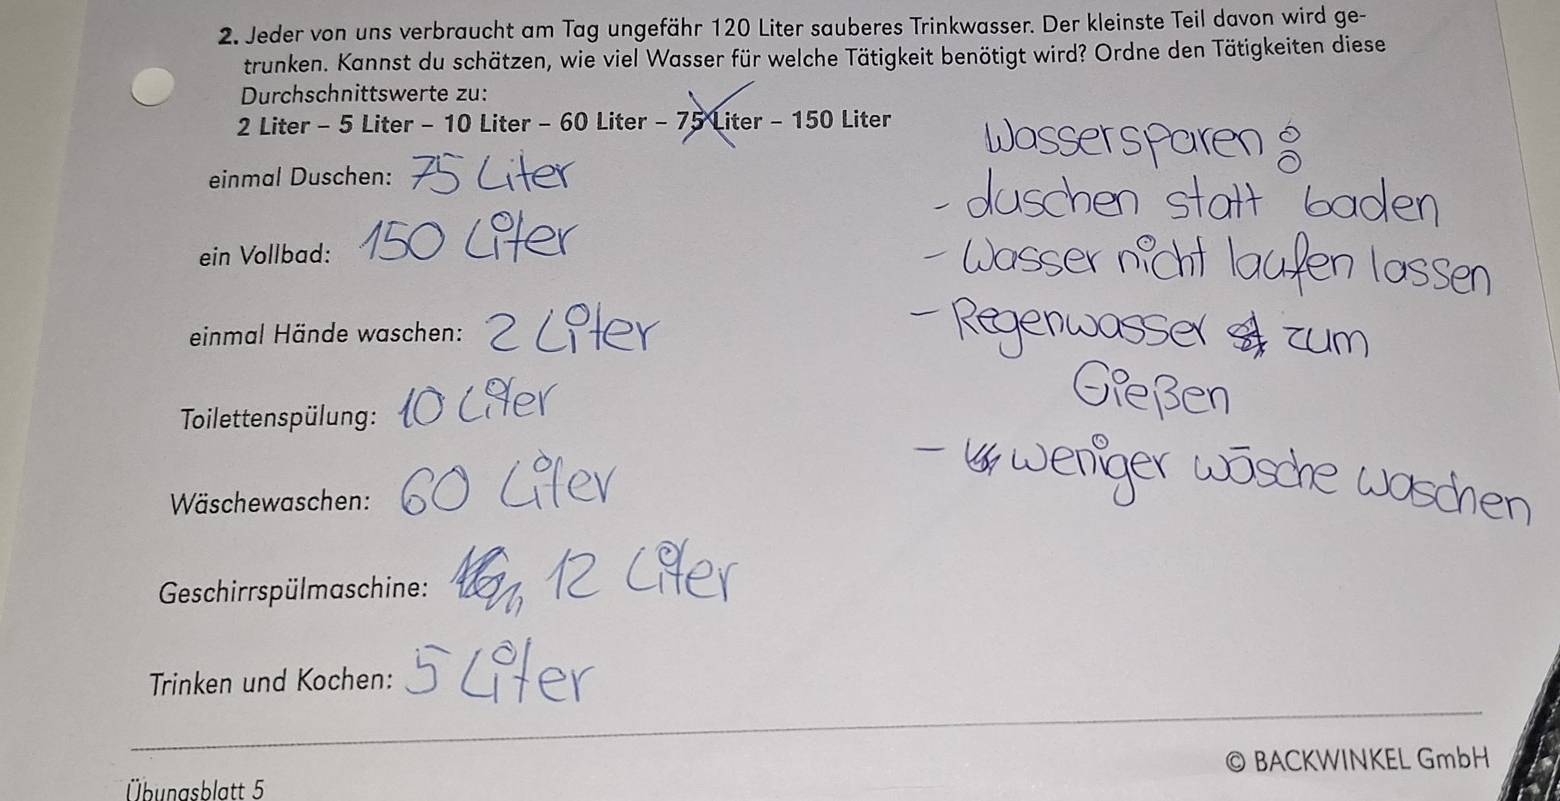 2. Jeder von uns verbraucht am Tag ungefähr 120 Liter sauberes Trinkwasser. Der kleinste Teil davon wird ge-
trunken. Kannst du schätzen, wie viel Wasser für welche Tätigkeit benötigt wird? Ordne den Tätigkeiten diese
Durchschnittswerte zu:
2 Liter – 5 Liter – 10 Liter – 60 Liter – 75 Liter – 150 Liter
einmal Duschen: 75 Liter
ein Vollbad: 150 Liter
einmal Hände waschen: 2 Liter
Toilettenspülung: 10 Liter
Wäschewaschen: 60 Liter
Geschirrspülmaschine: 12 Liter
Trinken und Kochen: 5 Liter
Wassersparen:
- duschen statt baden
- Wasser nicht laufen lassen
- Regenwasser zum
Gießen
- weniger wäsche waschen
© BACKWINKEL GmbH
Übungsblatt 5